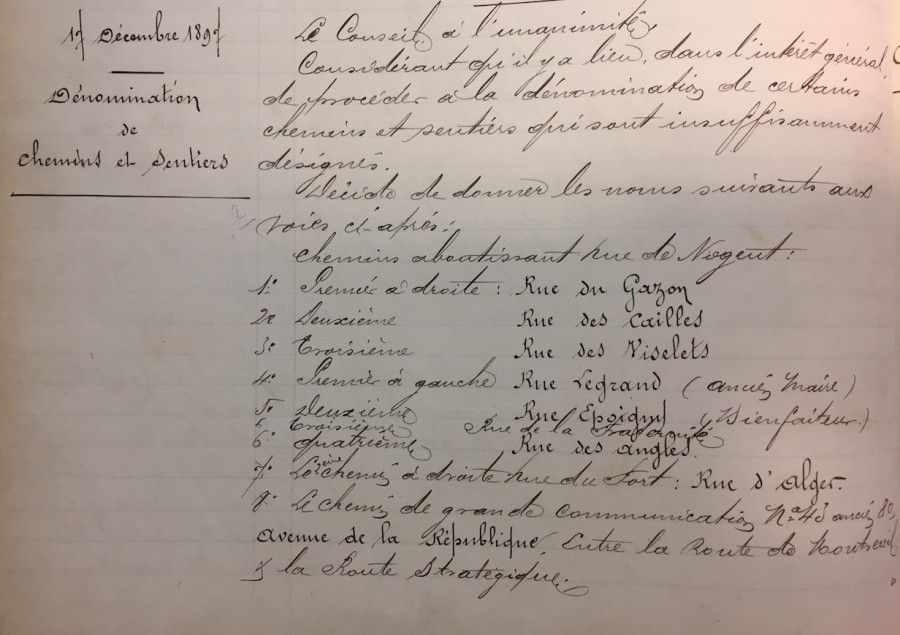 17 Décembre 1897
Dénomination
de
chemins et Sentiers
Le Conseil, à l'unanimité,
Considérant qu'il y a lieu, dans l'intérêt général,
de procéder à la dénomination de certains
chemins et sentiers qui sont insuffisamment
désignés.
Décide de donner les noms suivants aux
voies ci-après:
chemins aboutissant rue de Nogent:
1° Premier à droite: Rue du Gazon
2e Deuxième Rue des Cailles
3° Troisième Rue des Viselets
4° Premier à gauche Rue Legrand (ancien Maire)
5° Deuxième Rue Epoigny (Bienfaiteur)
6 Troisième Rue de la Fraternité
6° quatrième Rue des angles.
7° Le 2ème chemin à droite rue du Fort: Rue d'Alger.
8° Le chemin de grande communication N° 43 ancien 80,
avenue de la République, Entre la Route de Montreuil
& la Route Stratégique.